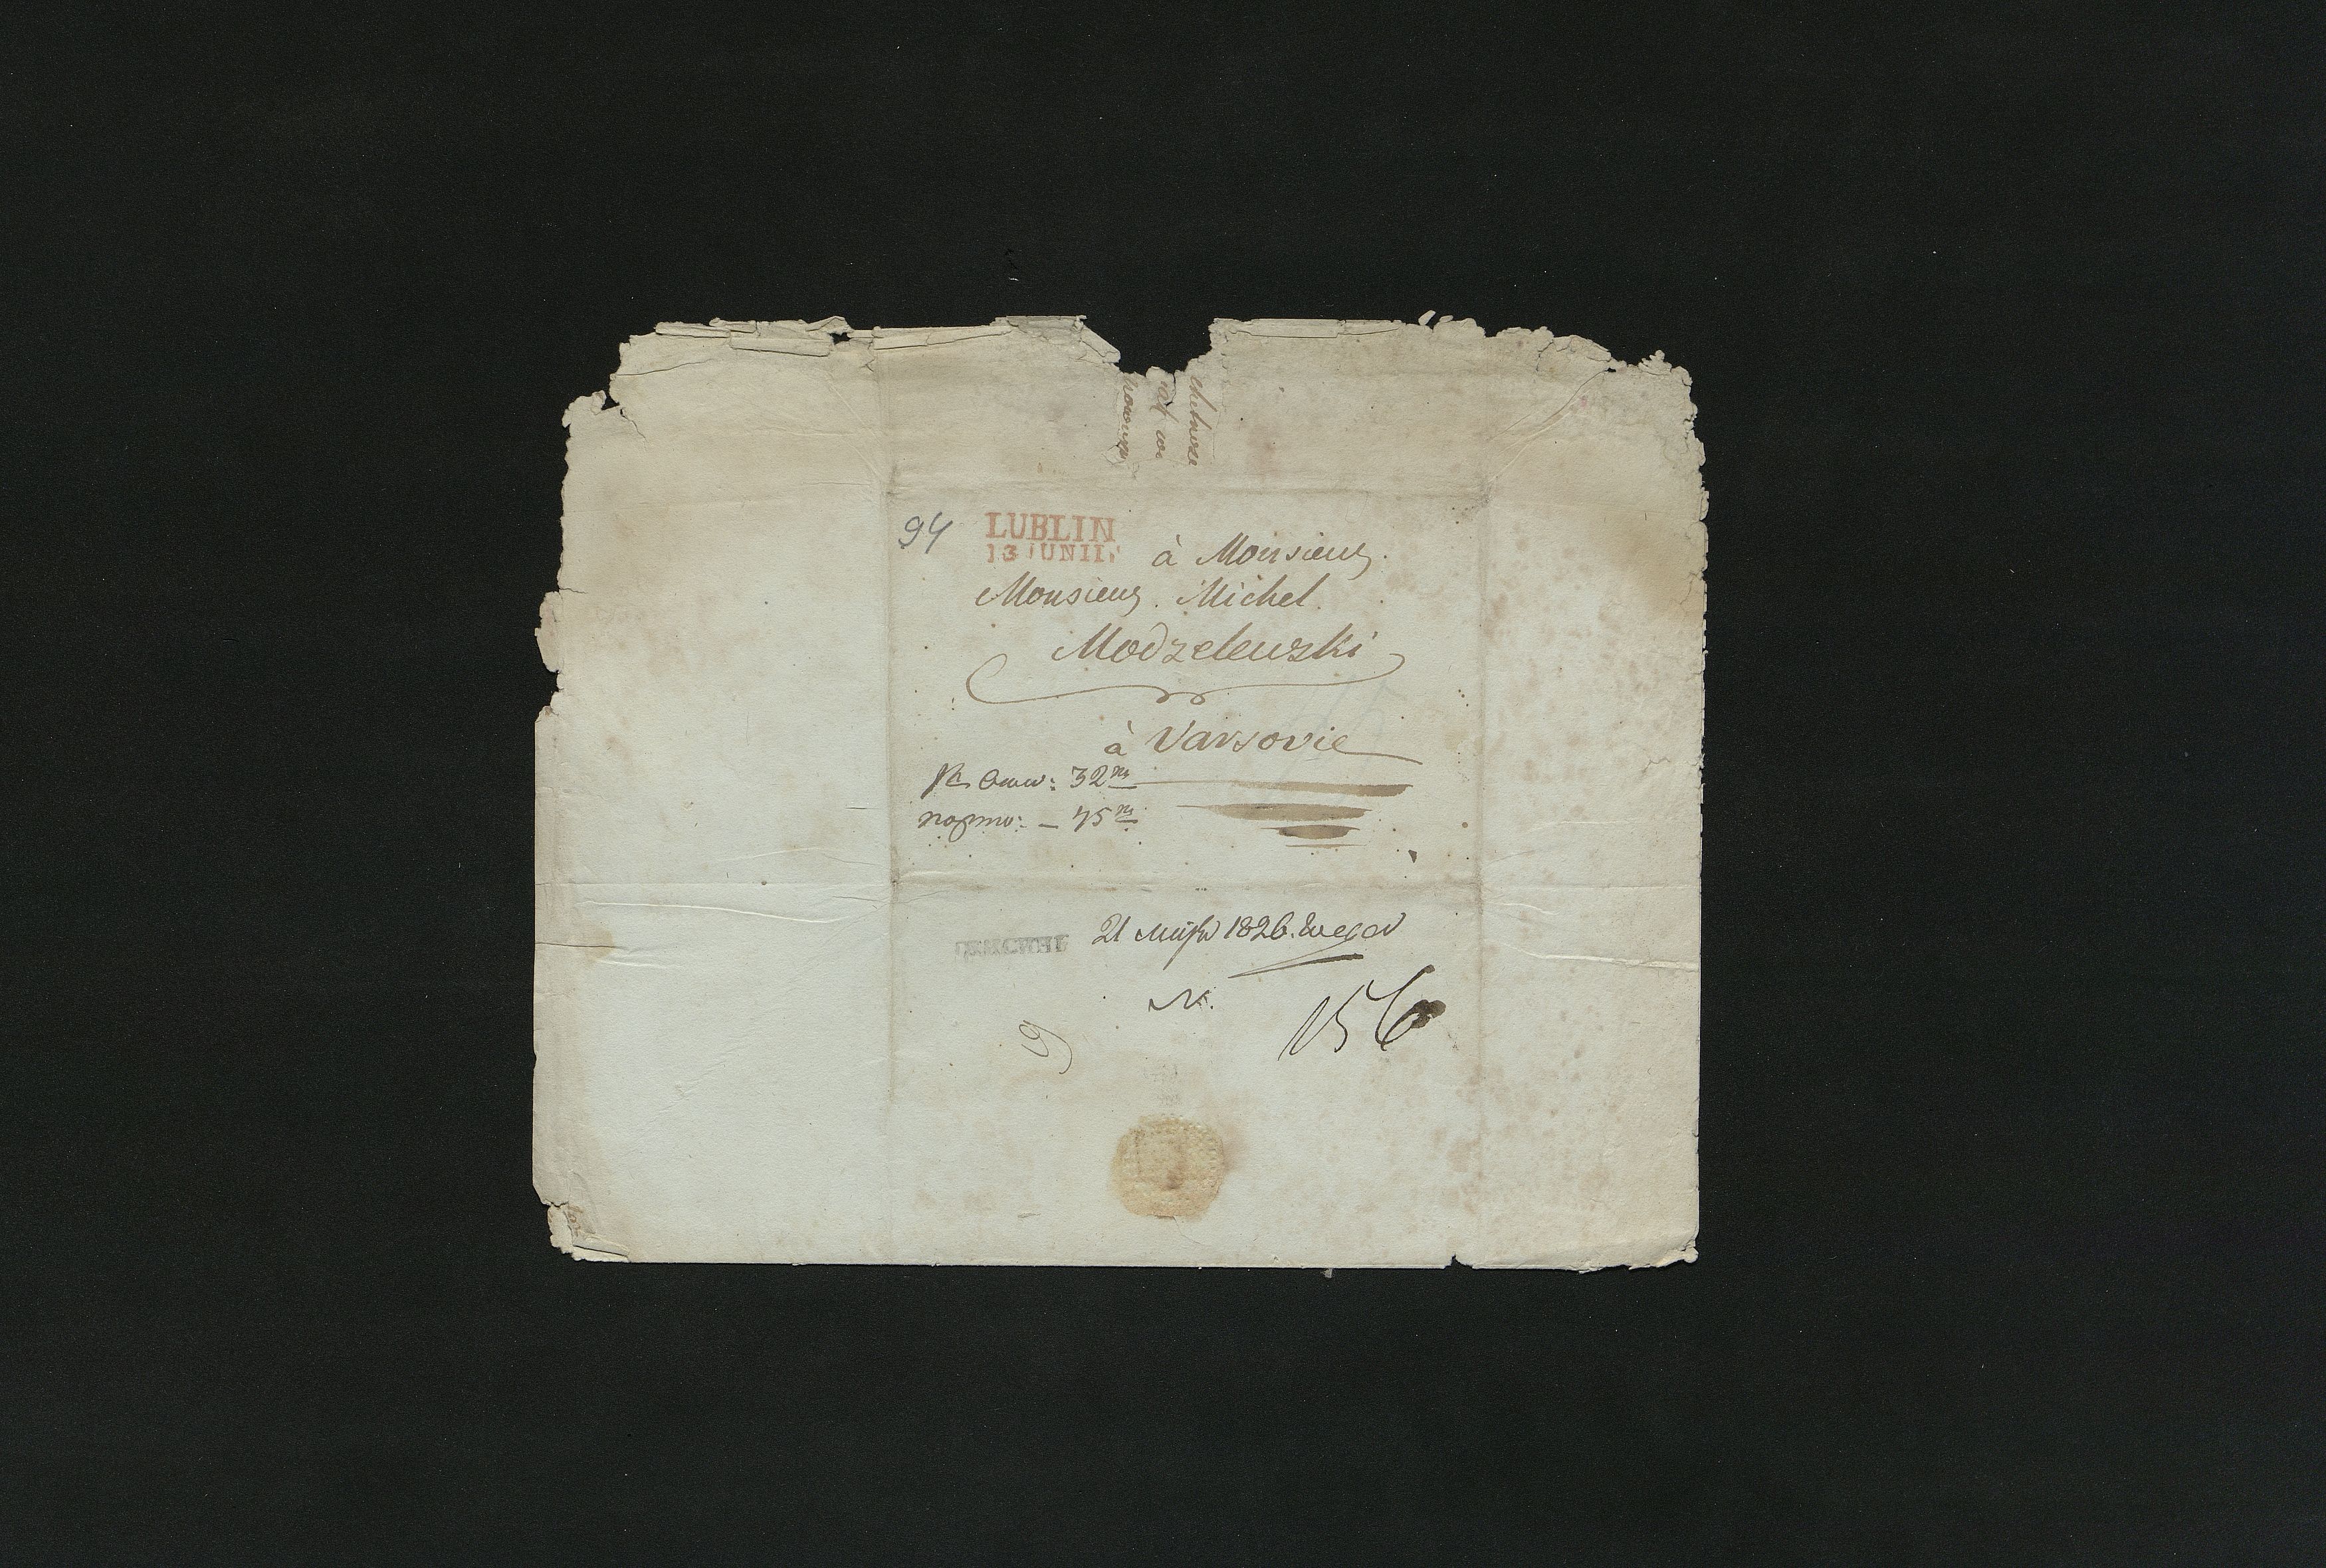 94
LUBLIN
13 IUNII.
à Monsieur
Monsieur Michel
Modzelewski
à Varsovie
32
порто: — 45
21 Мая 1826. года
N. 156
9